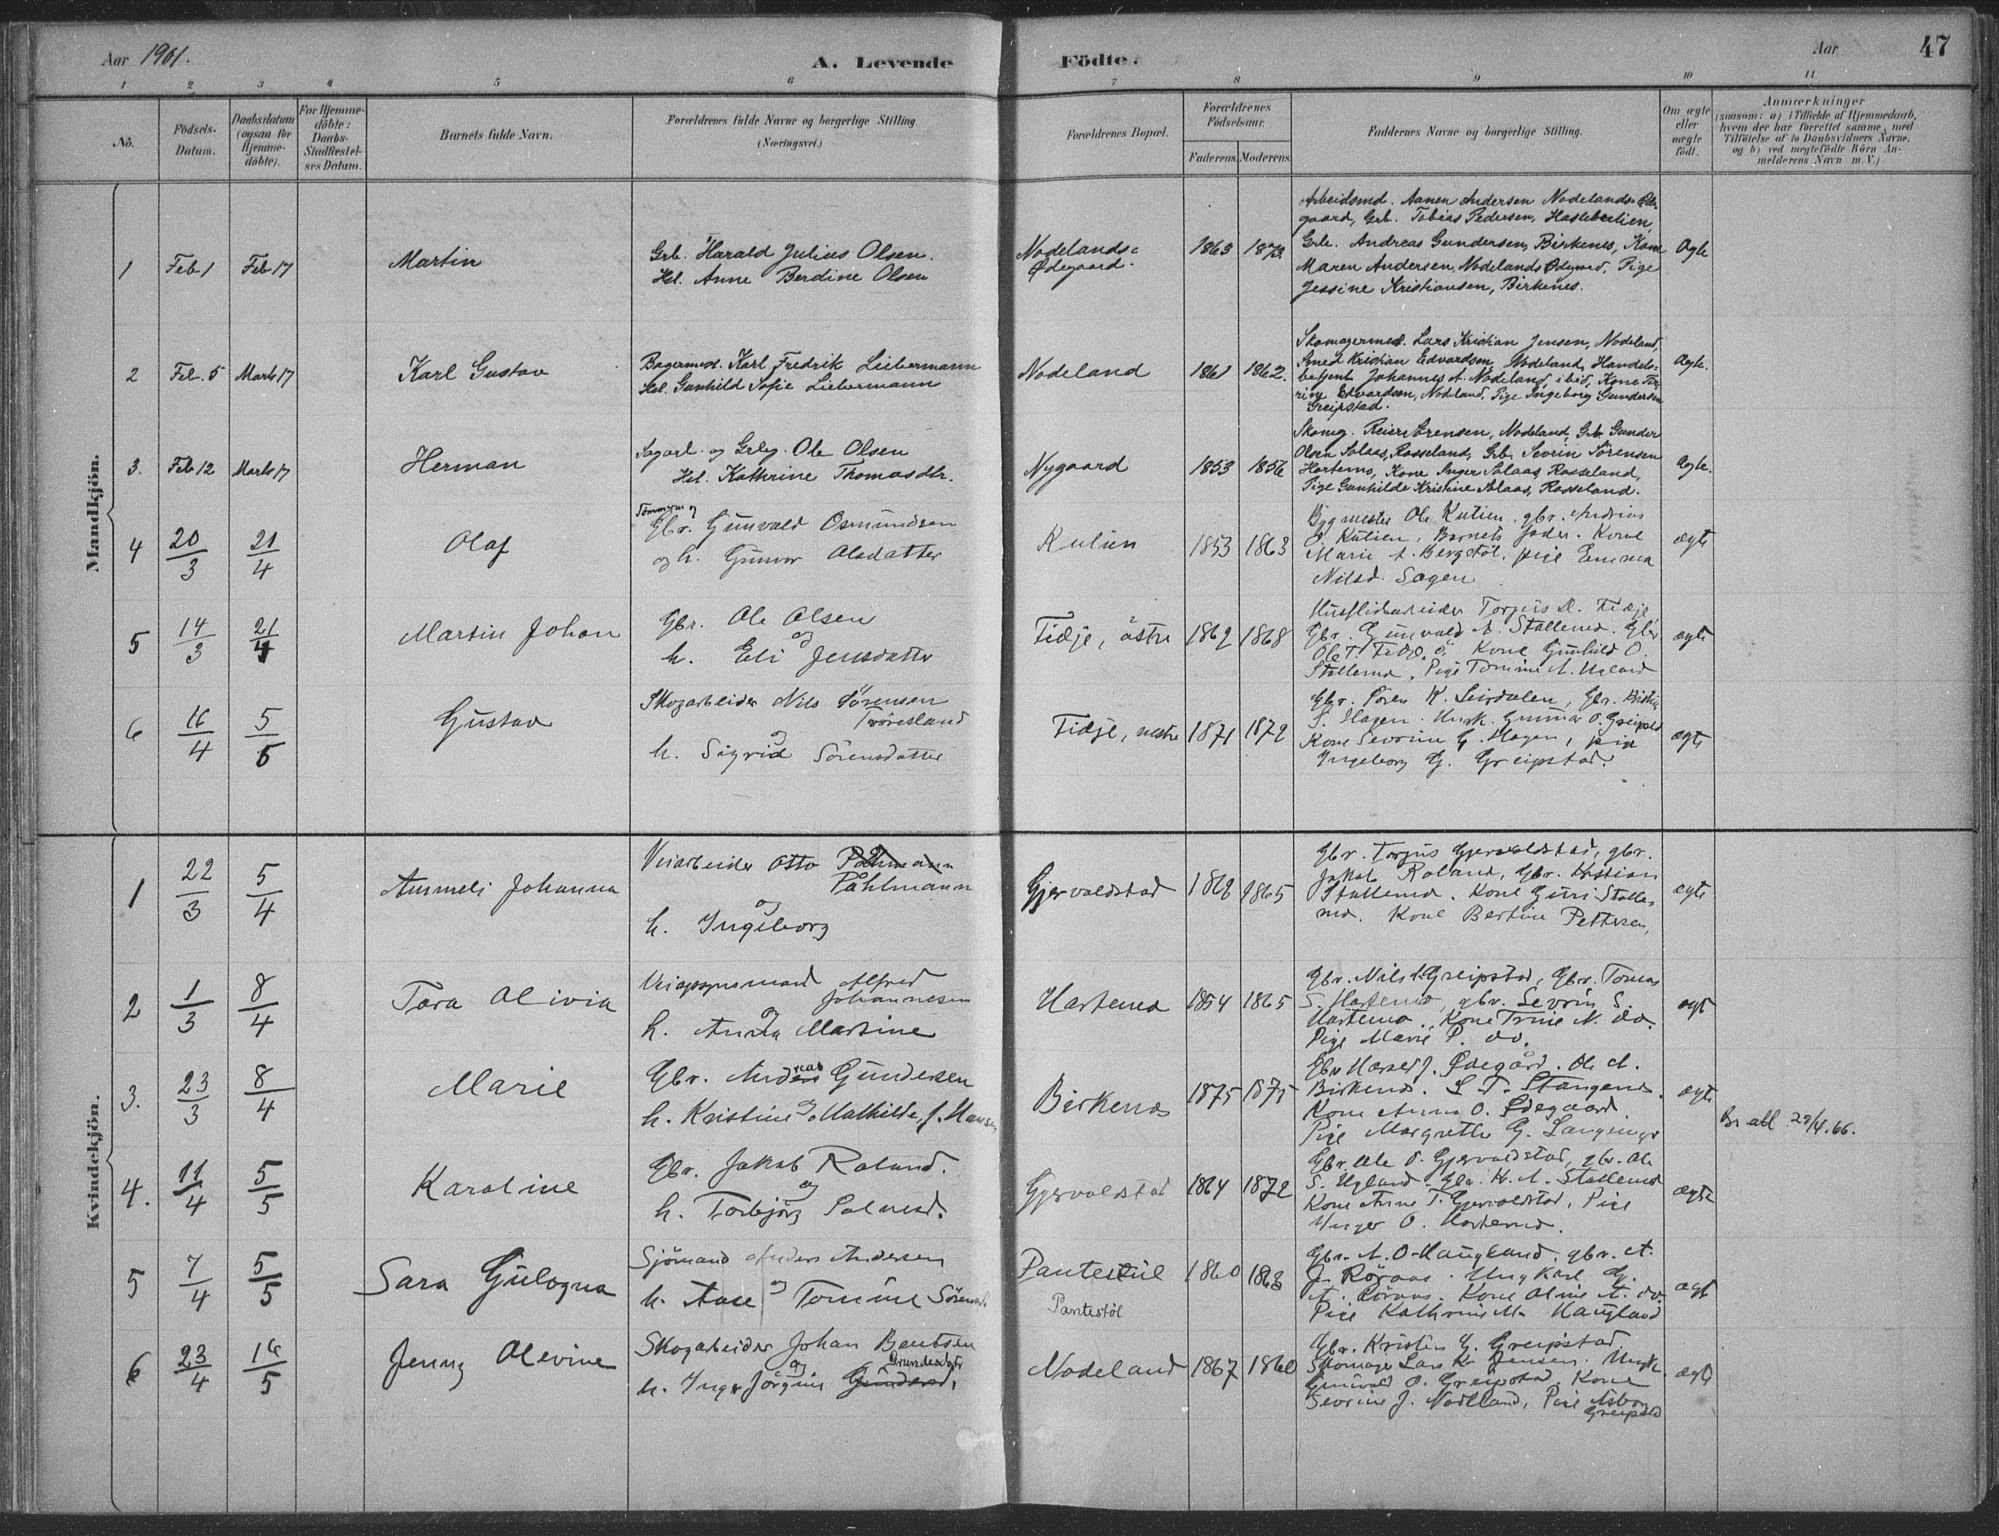 Aar 1901.
A. Levende Födte.
Aar
47
1 2 3 4 5 6 7 8 9 10 11
No.
Födsels-
Datum.
Daabsdatum
(ogsaa for
Hjemme-
döbte).
For Hjemme-
döbte:
Daabs-
Stadfæstel-
ses Datum.
Barnets fulde Navn.
Forældrenes fulde Navne og borgerlige Stilling.
(Næringsvei.)
Forældrenes Bopæl.
Forældrenes
Födselsaar.
Faderens. Moderens.
Faddernes Navne og borgerlige Stilling.
Om ægte
eller
uægte
født.
Anmærkninger
(saasom: a) i Tilfælde af Hjemmedaab,
hvem der har forrettet samme, med
Tilföielse af to Daabsvidners Navne,
og b) ved uægtefödte Börn An-
melderens Navn m. V.)
Mandkjön.
1 Feb 1 Feb 17 Martin
Grb. Harald Julius Olsen.
Hst. Anne Berdine Olsen
Nodelands-
Ødegaard.
1863 1873
Arbeidsmd. Aanen Andersen Nodelands-Øde-
gaard, Grb. Tobias Pedersen, Hastebeitien,
Grb. Andreas Gundersen, Birkenes, Kone
Maren Andersen, Nodelands Ødegaard, Pige
Jessine Kristiansen, Birkenes.
Ægte
2 Feb. 5 Marts 17 Karl Gustav
Bagermest. Karl Fredrik Liebermann
Hst. Gunhild Sofie Liebermann
Nodeland
1861 1862.
Skomagermest. Lars Kristian Jensen, Nodeland,
Smed Kristian Edvardsen, Nodeland, Handels-
betjent Johannes A. Nodeland, ibid, Kone To-
rine Edvardsen, Nodeland, Pige Ingeborg Gundersen
Greipstad.
Ægte.
3. Feb 12 Marts 17 Herman
Sagarb. og Grbg. Ole Olsen
Hst. Kathrine Thomasdtr.
Nygaard
1853 1856
Skomg. Reier Sørensen, Nodeland, Grb Gunder
Olsen Aalaas, Rosseland, Grb. Severin Sørensen
Hortemo, Kone Inger Aalaas, Rosseland,
Pige Gunhilde Kristine Aalaas, Rosseland.
Ægte.
4 20/3 21/4 Olaf
Tömmerm og
Gbr. Gunvald Osmundsen
og h. Gunvor Olsdatter
Kulien
1853 1863
Bygmester Ole Kulien, gbr. Andreas
O. Kulien, Barnets fader. Kone
Marie A. Bergstøl, pige Emma
Nilsd. Sagen
ægte
5 14/3 21/4 Martin Johan
Gbr. Ole Olsen
og
h. Eli Jensdatter
Fidje, östre
1862 1868
Husflidsarbeider Torgius O. Fidje
Gbr. Gunvald A. Stallemo. Gbr
Ole T. Fidje ö. Kone Gunhild O.
Stallemo, Pige Tomine A. Ugland
ægte
6 16/4 5/5 Gustav
Skogarbeider Nils Sörensen
Tröresland
og
h. Sigrid Sörensdatter
Fidje, vestre
1871 1872
Gbr. Sören K. Leirdalen, Gbr. Kristian
S. Hagen. Ungk. Gunnar O. Greipstad
Kone Severine G. Hagen, pige
Ingeborg G. Greipstad.
ægte
Kvindekjön.
1 22/3 5/4 Ammeli Johanna
Veiarbeider Otto
Påhlmann
og
h. Ingeborg
Gjervoldstad
1868 1865
Gbr. Torjus Gjervoldstad, gbr.
Jakob Roland, Gbr. Kristian
Stallemo. Kone Guri Stalle-
mo. Kone Bertine Pettersen,
ægte
2 1/3 8/4 Tora Olivia
Veiopsynsmand Alfred
Johannesen
og
h. Anna Martine
Hortemo
1854 1865
Gbr. Nils A. Greipstad, Gbr. Tomas
S. Hortemo, gbr. Severin S.
Hortemo, Kone Trine N. do.
Pige Marie P. do.
ægt
3. 23/3 8/4 Marie
Gbr. Andreas Gundersen
h. Kristine og Mathilde, f. Hansen
Birkenes
1875 1875
Gbr Harald J. Ødegård. Ole A.
Birkenes. L. T. Stangenes.
Kone Anna O. Ødegaard.
Pige Margrethe G. Langemyr
ægte
Br att 29/4.66.
4. 11/4 5/5 Karoline
Gbr. Jakob Roland.
og
h. Torbjörg Salvesd.
Gjervoldstad
1864 1872
Gbr. Ole O. Gjervoldstad, gbr. Ole
S. Ugland, Gbr. K. A. Stallemo
Kone Anne T. Gjervoldstad, Pige
Unger O. Hortemo.
ægte
5 7/4 5/5 Sara Gulogna
Sjömand Anders Andersen
h. Aase og Tomine Sörensd.
Pantestiil
Pantestöl
1860 1863
Gbr. A. O. Haugland, gbr. A.
J. Röraas. Ungkarl G.
A. Röraas. Kone Oline A. do.
Pige Kathrine M. Haugland
ægt
6 23/4 16/5 Jenny Olevine
Skogarbeider Johan Bentsen
og Gundersdtr
h. Inger Jörgine Gundersd.
Nodeland
1867 1860
Gbr. Kristen G. Greipstad
Skomager Lars Kr. Jensen. Ungk.
Gunvald O. Greipstad. Kone
Severine J. Nodeland, Pige Asborg
Greipstad
ægte